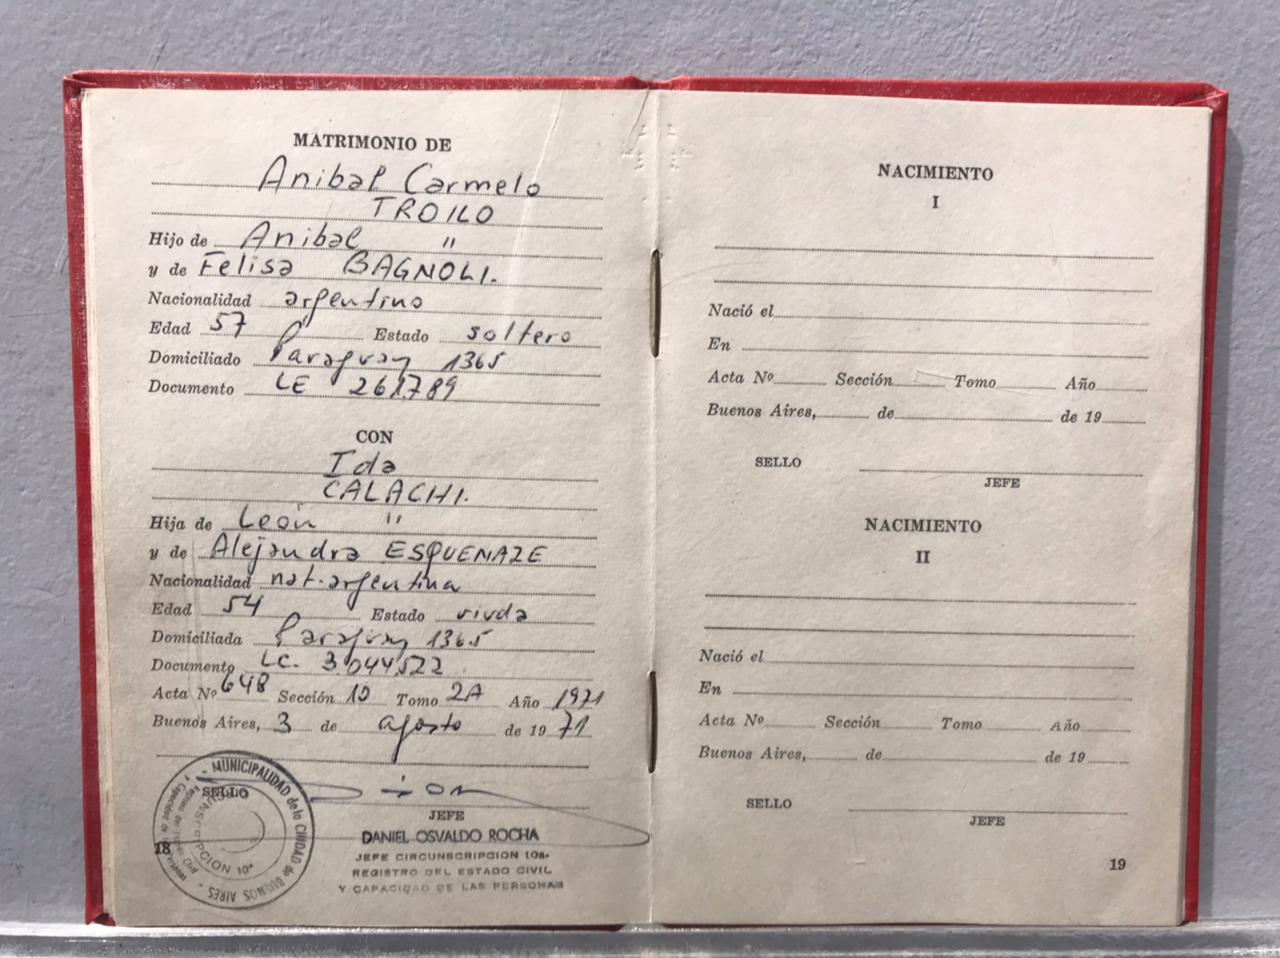 MATRIMONIO DE
Anibal Carmelo
TROILO
Hijo de Anibal "
y de Felisa BAGNOLI.
Nacionalidad argentino
Edad 57 Estado soltero
Domiciliado Paraguay 1365
Documento LE 261.789
CON
Ida
CALACHI.
Hija de León "
y de Alejandra ESQUENAZE
Nacionalidad nat. argentina
Edad 54 Estado viuda
Domiciliada Paraguay 1365
Documento LC. 3.044.522
Acta Nº 648 Sección 10 Tomo 2A Año 1971
Buenos Aires, 3 de agosto de 1971
SELLO
JEFE
DANIEL OSVALDO ROCHA
JEFE CIRCUNSCRIPCION 10a.
REGISTRO DEL ESTADO CIVIL
Y CAPACIDAD DE LAS PERSONAS
MUNICIPALIDAD de la CIUDAD de BUENOS AIRES
CIRCUNSCRIPCION 10ª
18
NACIMIENTO
I
Nació el
En
Acta Nº Sección Tomo Año
Buenos Aires, de de 19
SELLO
JEFE
NACIMIENTO
II
Nació el
En
Acta Nº Sección Tomo Año
Buenos Aires, de de 19
SELLO
JEFE
19